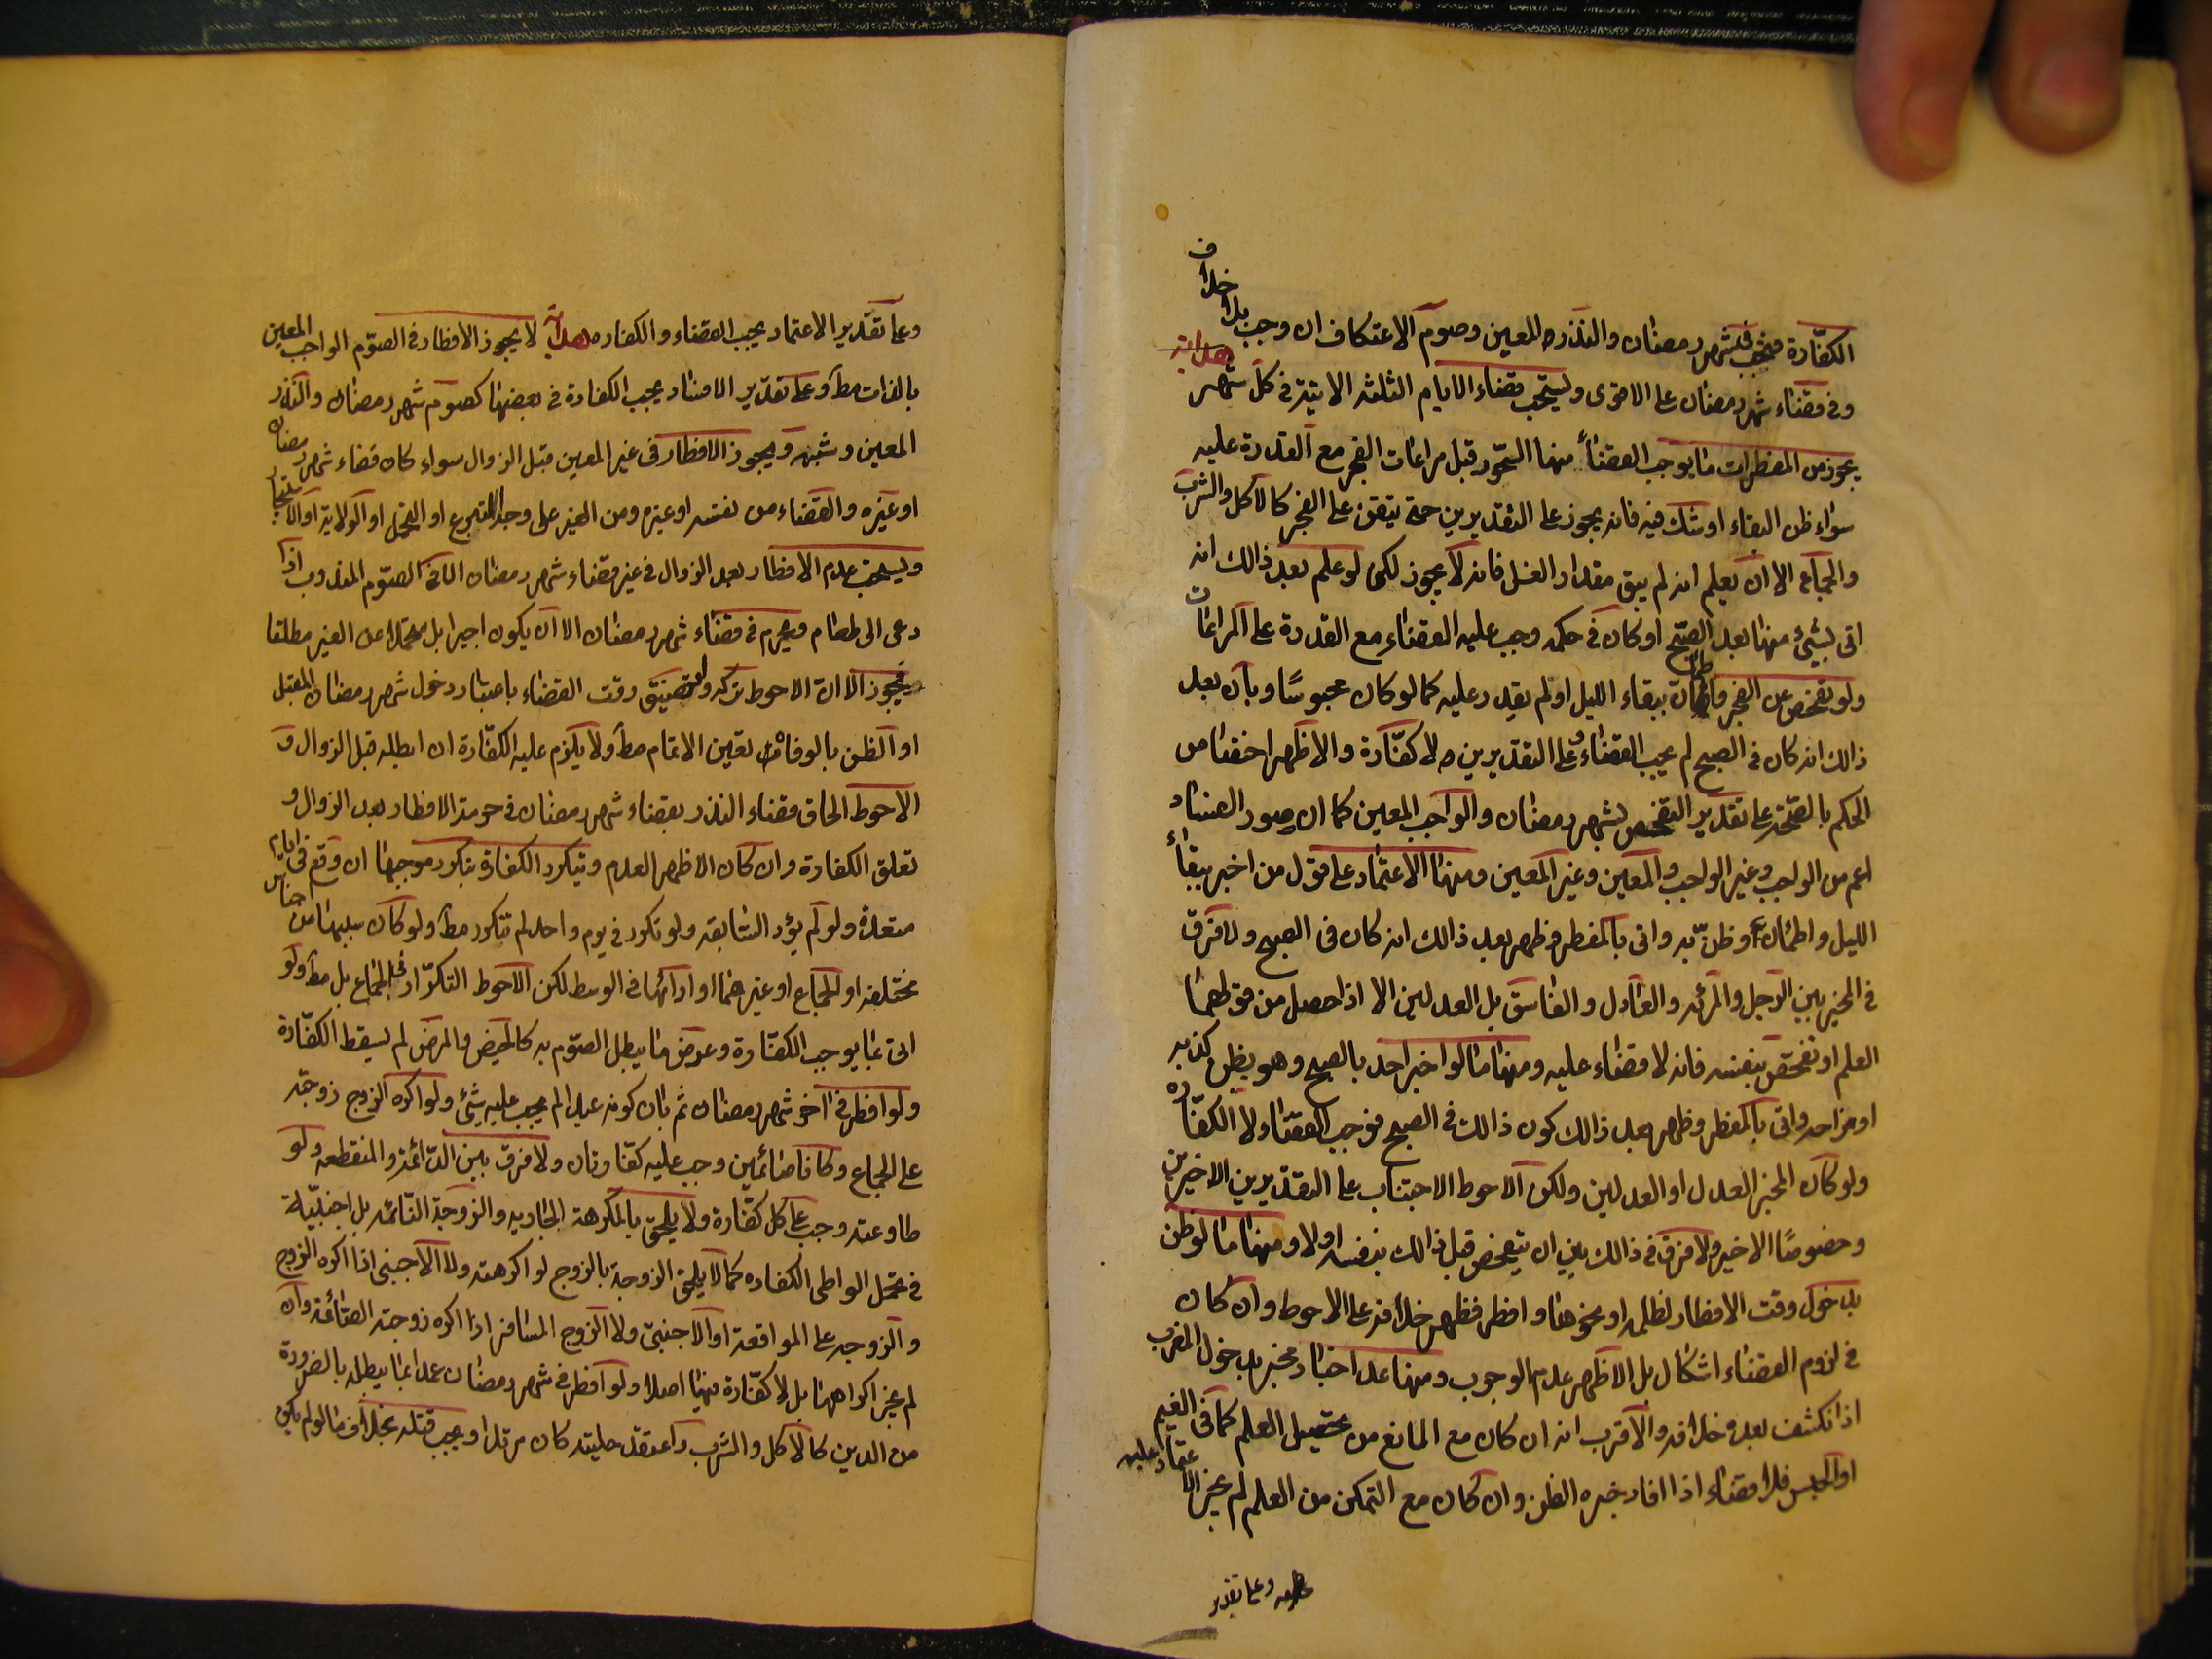 الكفّارة فتجب فى شهر رمضان والنذر المعين وصوم الاعتكاف ان وجب بلا خلاف
وفى قضاء شهر رمضان على الاقوى ويستحب قضاء الايام الثلثه الاتية فى كل شهر هداية
يجوز من المفطرات ما يوجب القضاء منها السّحور قبل مراعات الفجر مع القدرة عليه
سواء ظن البقاء او شك فيه فانه يجوز على التقديرين حتى تيقن على الفجر كالاكل والشرب
والجماع الا ان يعلم انه لم يبق مقدار الغسل فانه لا يجوز لكن لو علم بعد ذالك انه
اتى بشيئ منها بعد الصّبح او كان فى حكمه وجب عليه القضاء مع القدرة على المراعات
ولو تفحص عن الفجر وظان ببقاء الليل او لم يقدر عليه كما لو كان محبوسًا وبان بعد
ذالك انه كان فى الصبح لم يجب القضاء على التقديرين ولا كفّارة والاظهر اختصاص
الحكم بالصّحة على تقدير التفحص بشهر رمضان والواجب المعين كما ان صور الفساد
اعم من الواجب وغير الواجب والمعين وغير المعين ومنها الاعتماد على قول من اخبر ببقاء
الليل واطمئان او ظنّ به واتى بالمفطر وظهر بعد ذالك انه كان فى الصبح ولا فرق
فى المخبر بين الرّجل والمرئه والعادل والفاسق بل العدلين الا اذا حصل من قولهما
العلم او تفحّص بنفسه فانه لا قضاء عليه ومنها ما لو اخبر احد بالصبح وهو يظن كذبه
او مزاحه واتى بالمفطر وظهر بعد ذالك كون ذالك فى الصبح فوجب القضاء لا الكفّاره
ولو كان المخبر العدل او العدلين ولكن الاحوط الاجتناب على التقديرين الاخيرين
وخصوصًا الاخير ولا فرق فى ذالك بين ان يتفحص قبل ذالك بنفسه او لا ومنها ما لو ظن
بدخول وقت الافطار لظلمه او نحوها وافطر فظهر خلافه على الاحوط وان كان
فى لزوم القضاء اشكال بل الاظهر عدم الوجوب ومنها عد اخبار مخبر بدخول المغرب
اذا انكشف بعده خلافه والاقرب انه ان كان مع المانع من تحصيل العلم كما فى الغيم
او الحبس فلا قضاء اذا افاد خبره الظن وان كان مع التمكن من العلم لم يجز الاعتماد عليه
وعلى تقدير
وعلى تقدير الاعتماد يجب القضاء والكفاره هداية لا يجوز الافطار فى الصّوم الواجب المعين
بالذات مط وعلى تقدير الافساد يجب الكفارة فى بعضها كصوم شهر رمضان والنذر
المعين وشبهه ويجوز الافطار فى غير المعين قبل الزوال سواء كان قضاء شهر رمضان
او غيره والقضاء من نفسه او غيره ومن الغير على وجه التبرع او التحمل او الولاية او الاستيجار
ويستحب عدم الافطار بعد الزوال فى غير قضاء شهر رمضان الا فى الصّوم المندوب اذا
دعى الى طعام ويحرم فى قضاء شهر رمضان الا ان يكون اجيرا بل متحملا من الغير مطلقا
فيجوز الا ان الاحوط تركه ولو تضيّق وقت القضاء باعتبار دخول شهر رمضان المقبل
او الظن بالوفات تعين الاتمام مط ولا يلزم عليه الكفّارة ان ابطله قبل الزوال و
الاحوط الحاق قضاء النذر بقضاء شهر رمضان فى حرمة الافطار بعد الزوال و
تعلق الكفارة وان كان الاظهر العدم ويتكرر الكفارة بتكرر موجبها ان وقع فى ايام
متعددة ولو لم يؤد السابقه ولو تكرر فى يوم واحد لم تتكرر مط ولو كان سببها من اجناس
مختلفه او الجماع او غيرهما او ادائها فى الوسط لكن الاحوط التكرّار فى الجماع بل مط ولو
اتى بما يوجب الكفّارة وعرض ما يبطل الصّوم به كالحيض والمرض لم يسقط الكفّارة
ولو افطر فى اخر شهر رمضان ثم بان كونه عيدا لم يجب عليه شيئ ولو اكره الزوج زوجته
على الجماع وكانا صائمين وجب عليه كفّارتان ولا فرق بين الدّائمة والمنقطعه ولو
طاوعته وجب على كل كفّارة ولا يلحق بالمكرهة الجاريه والزوجة النّائمه بل اجنبيّة
فى تحمل الواطى الكفاره كما لا يلحق الزوجة بالزوج لو اكرهته ولا الاجنبى اذا اكره الزوج
والزوجه على المواقعة او الاجنبىّ ولا الزوج المسافر اذا اكره زوجته الصّائمة وان
لم يجز اكراهها بل لا كفّارة فيها اصلا ولو افطر فى شهر رمضان عمدا بما يبطله بالضرورة
من الدين كالاكل والشرب واعتقد حليته كان مرتدا وجب قتله بخلاف ما لو لم يكن